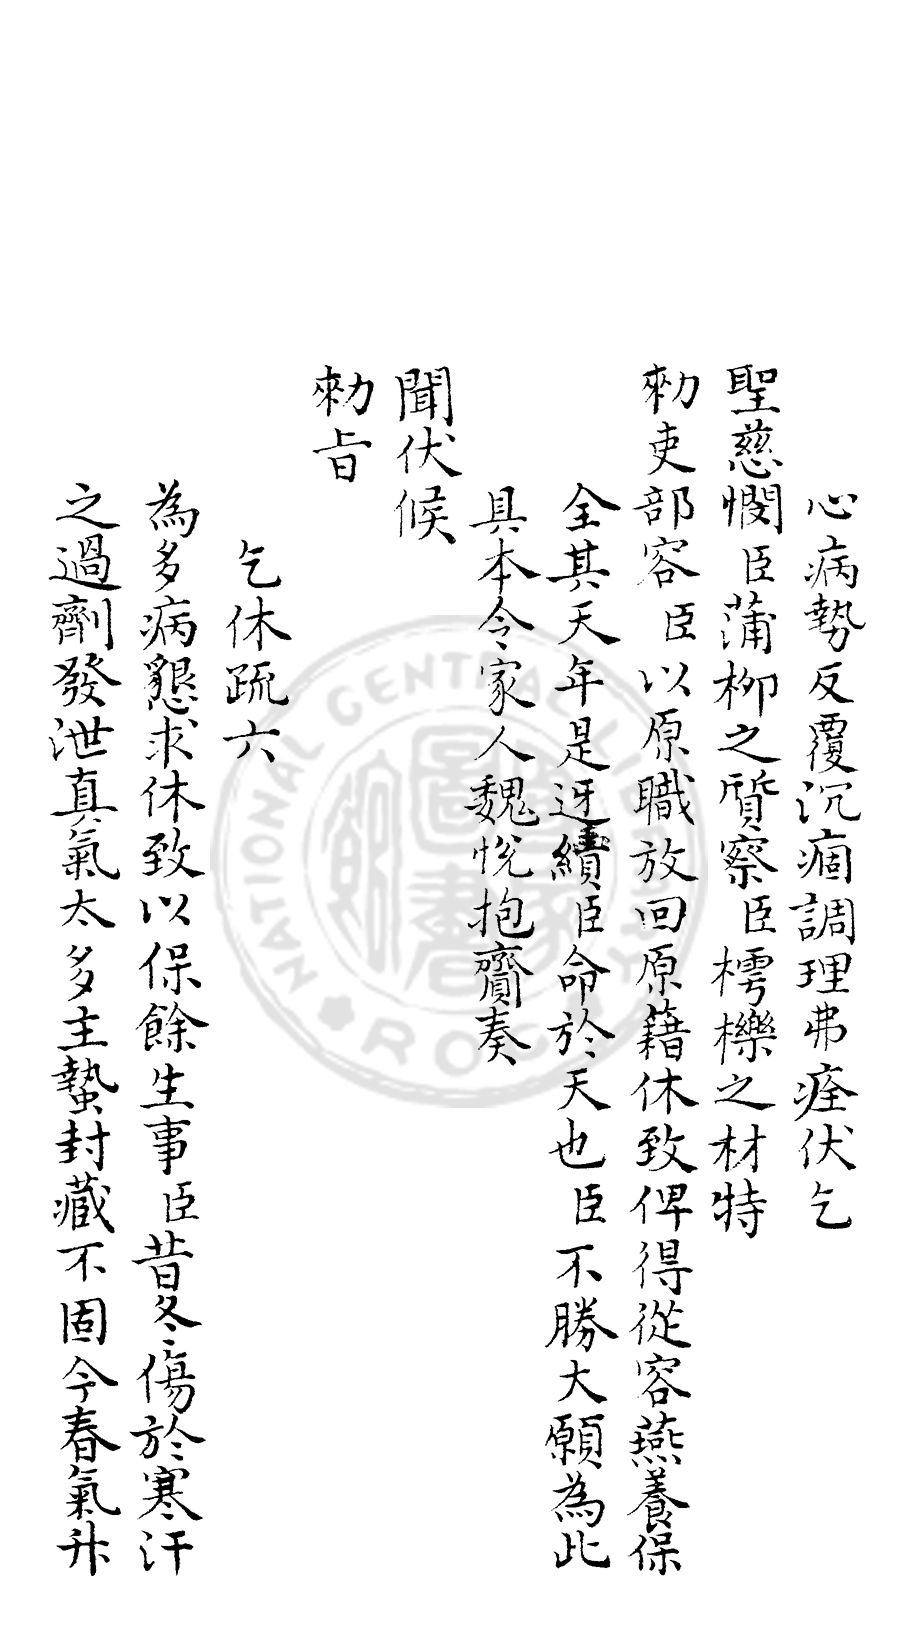 心病勢反覆沉痼調理弗痊伏乞
聖慈憫臣蒲柳之質察臣樗櫟之材特
勑吏部容臣以原職放回原籍休致俾得從容燕養保
全其天年是迓續臣命於天也臣不勝大願為此
具本令家人魏悅抱齎奏
聞伏候
勑旨
乞休疏六
為多病懇求休致以保餘生事臣昔冬傷於寒汗
之過劑發泄真氣太多主蟄封藏不固今春氣升
NATIONAL CENTRAL LIBRARY
R.O.C.